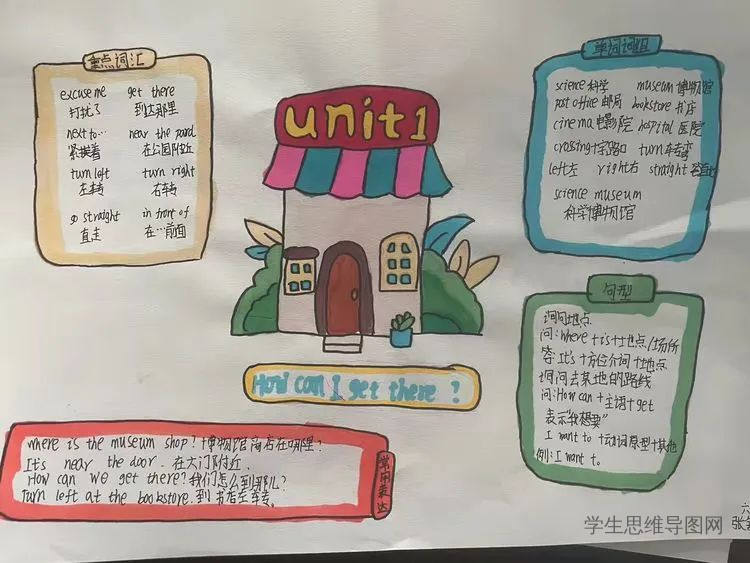 重点词汇
excuse me get there
打扰了 到达那里
next to… near the
紧挨着 在公园附近
turn left turn right
左转 右转
go straight in front of
直走 在…前面
unit1
单词词组
science 科学 museum 博物馆
post office 邮局 bookstore 书店
cinema 电影院 hospital 医院
crossing 十字路口 turn 转弯
left 左 right 右 straight
science museum
科学博物馆
句型
询问地点
问:Where+is+地点/场所
答:It's+方位介词+地点
询问去某地的路线
问:How can+主语+get
表示"我想要"
I want to+动词原型+其他
例:I want t。
How can I get there?
常用表达
where is the museum shop?博物馆商店在哪里?
It's near the door.在大门附近.
How can we get there?我们怎么到那儿?
Turn left at the bookstore.到书店左转。
六
张
学生思维导图网